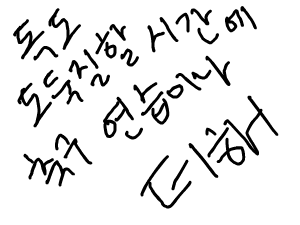 독도
도둑질할 시간에
축구 연습이나
더해